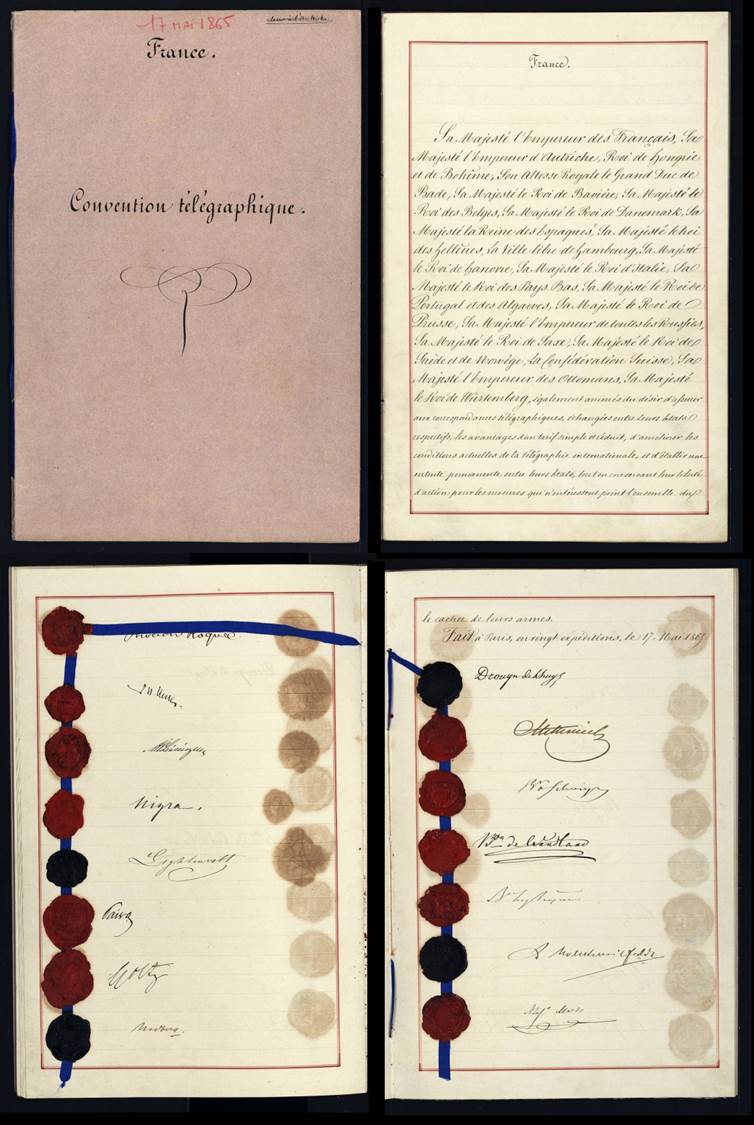 17 MAI 1865
France.
Convention télégraphique.
France.
Sa Majesté l'Empereur des Français, Sa
Majesté l'Empereur d'Autriche, Roi de Hongrie
et de Bohême, Son Altesse Royale le Grand Duc de
Bade, Sa Majesté le Roi de Bavière, Sa Majesté le
Roi des Belges, Sa Majesté le Roi de Danemark, Sa
Majesté la Reine des Espagnes, Sa Majesté le Roi
des Hellènes, la Ville libre de Hambourg, Sa Majesté
le Roi de Hanovre, Sa Majesté le Roi d'Italie, Sa
Majesté le Roi des Pays Bas, Sa Majesté le Roi de
Portugal et des Algarves, Sa Majesté le Roi de
Prusse, Sa Majesté l'Empereur de toutes les Russies,
Sa Majesté le Roi de Saxe, Sa Majesté le Roi de
Suède et de Norwège, la Confédération Suisse, Sa
Majesté l'Empereur des Ottomans, Sa Majesté
le Roi de Würtemberg, également animés du désir d'assurer
aux correspondances télégraphiques, échangées entre leurs états
respectifs, les avantages d'un tarif simple et réduit, d'améliorer les
conditions actuelles de la télégraphie internationale, et d'établir une
entente permanente entre leurs états, tout en conservant leur liberté
d'action pour les mesures qui n'intéressent point l'ensemble du
Nigra.
Lightenvelt
Paiva
Goltz
le cachet de leurs armes.
Fait à Paris, en vingt expéditions, le 17 Mai 1865
Drouyn de Lhuys
Metternich